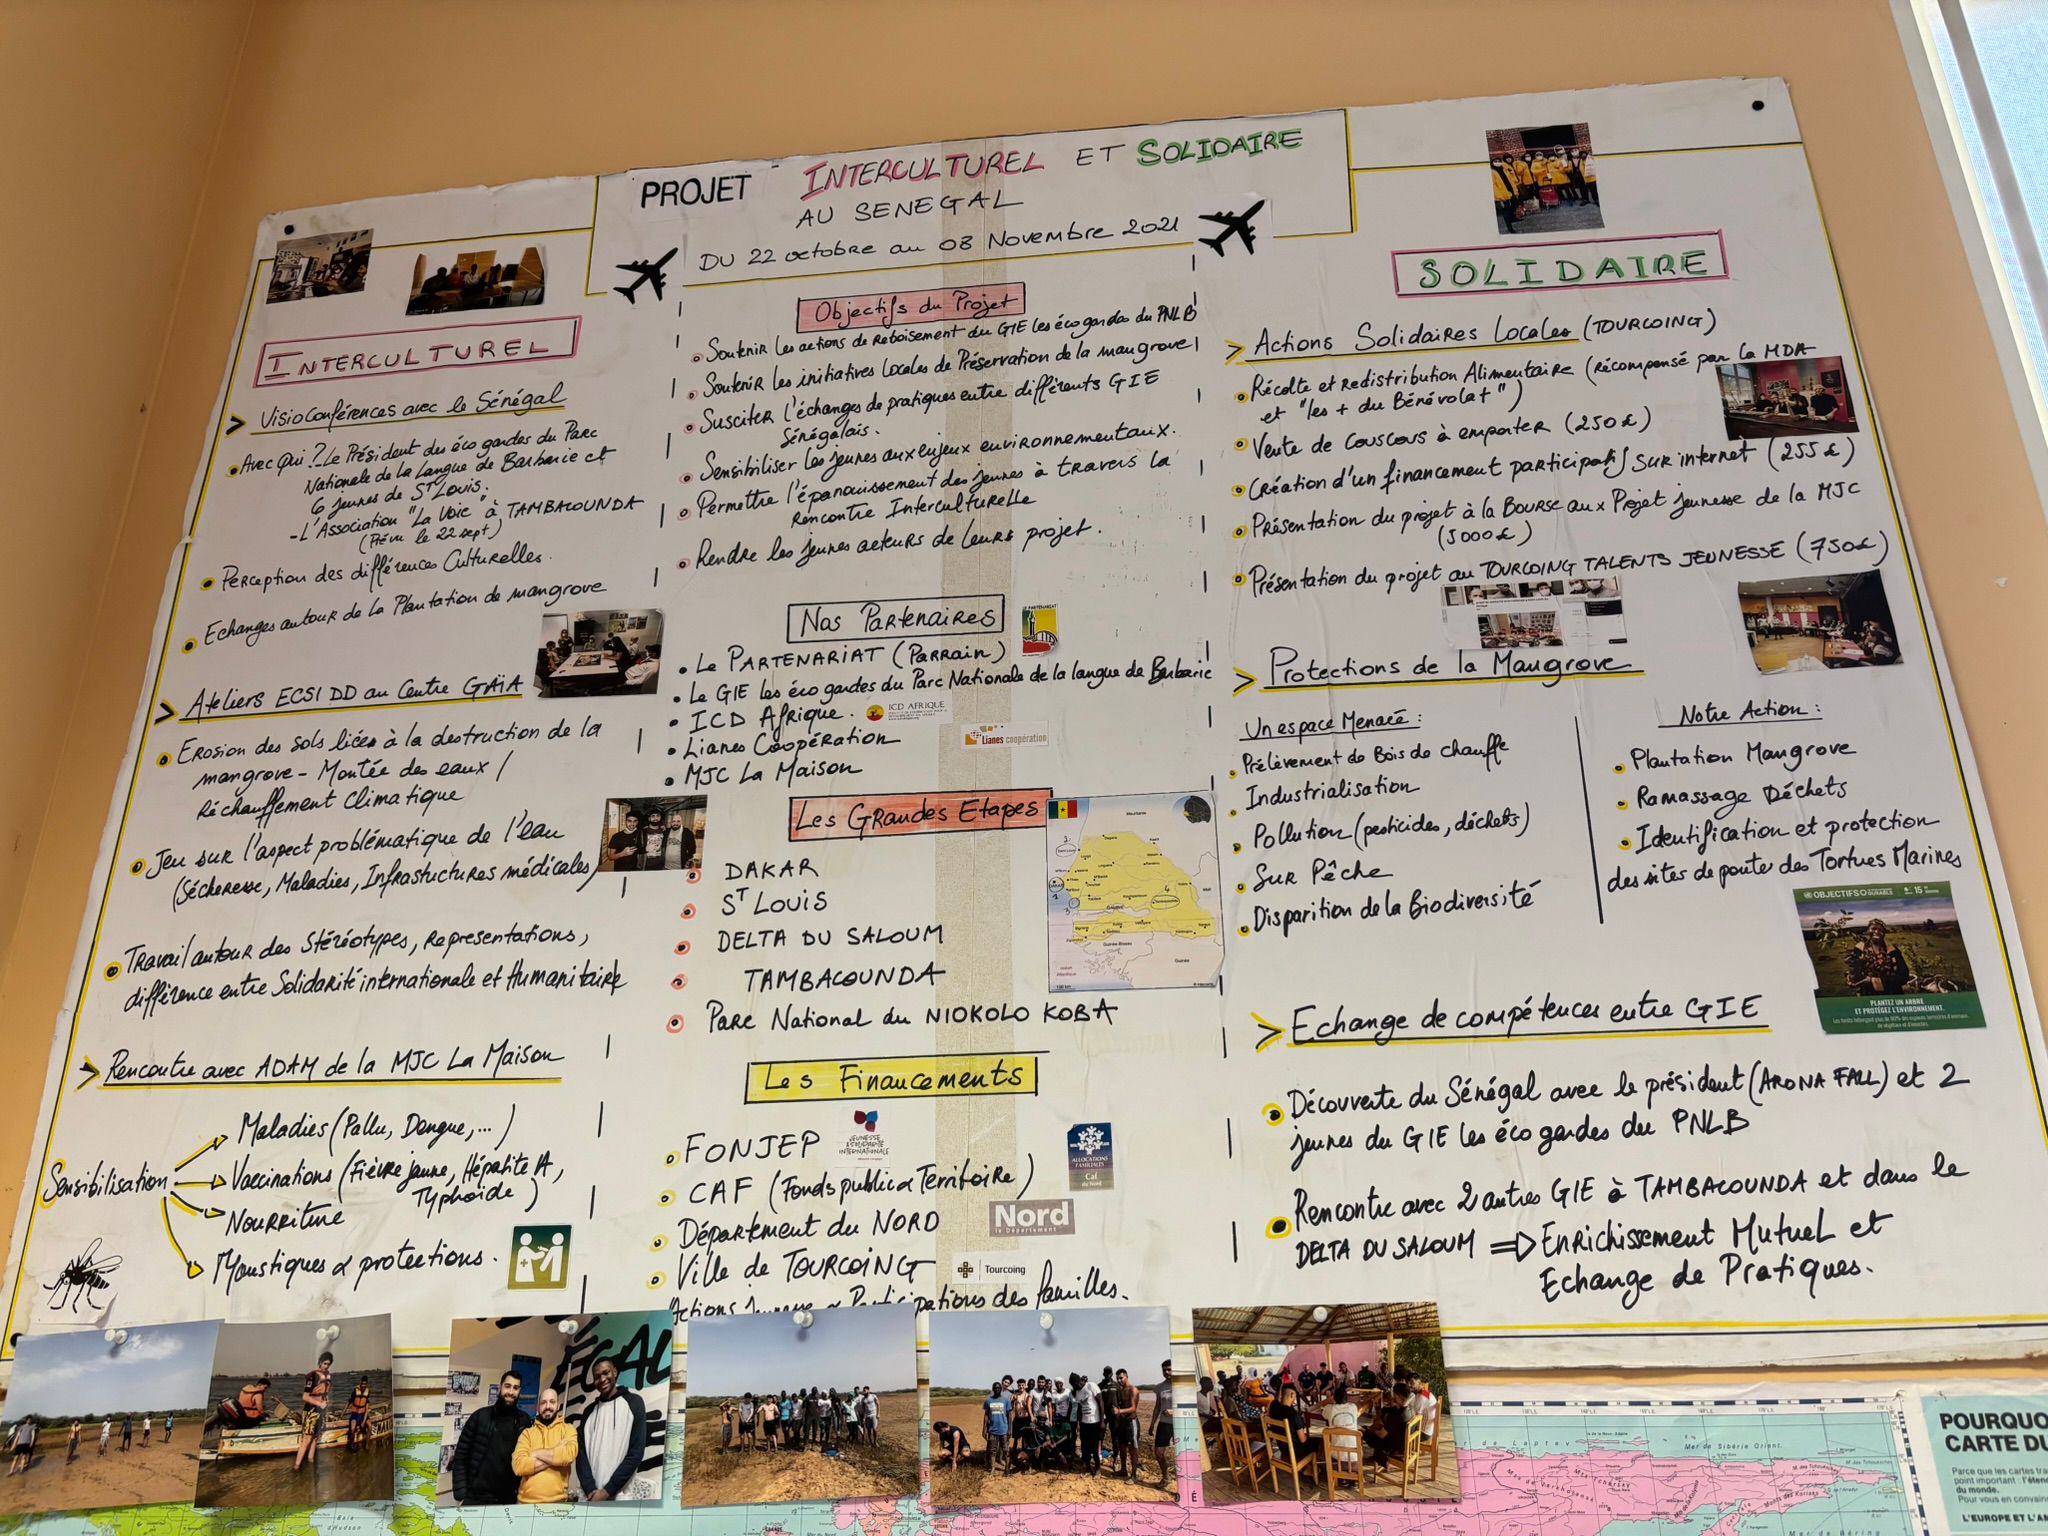 PROJET INTERCULTUREL ET SOLIDAIRE
AU SENEGAL
DU 22 octobre au 08 Novembre 2021
INTERCULTUREL
> VisioConférences avec le Sénégal
Avec qui ? Le Président des éco gardes du Parc
Nationale de la Langue de Barbarie et
6 jeunes de ST Louis.
- L'Association "La Voie" à TAMBACOUNDA
(Prévu le 22 sept)
Perception des différences Culturelles.
Echanges autour de la Plantation de mangrove
> Ateliers ECSI DD au Centre GAïA
Erosion des sols liées à la destruction de la
mangrove - Montée des eaux /
Réchauffement climatique
Jeu sur l'aspect problématique de l'eau
(Sécheresse, Maladies, Infrastuctures médicales)
Travail autour des Stéréotypes, représentations,
différence entre Solidarité internationale et Humanitaire
> Rencontre avec ADAM de la MJC La Maison
Sensibilisation
Maladies (Pallu, Dengue, ...)
Vaccinations (Fièvre jaune, Hépatite A,
Typhoïde)
Nourriture
Moustiques & protections.
Objectifs du Projet
Soutenir les actions de reboisement du GIE les éco gardes du PNLB
Soutenir les initiatives locales de Préservation de la mangrove
Susciter l'échanges de pratiques entre différents GIE
Sénégalais.
Sensibiliser les jeunes aux enjeux environnementaux.
Permettre l'épanouissement des jeunes à travers la
rencontre Interculturelle
Rendre les jeunes acteurs de leurs projet.
Nos Partenaires
LE PARTENARIAT
• Le PARTENARIAT (Parrain)
• Le GIE les éco gardes du Parc Nationale de la langue de Barbarie
• ICD Afrique.
ICD AFRIQUE
• Lianes Coopération
Lianes coopération
• MJC La Maison
Les Grandes Etapes
DAKAR
ST LOUIS
DELTA DU SALOUM
TAMBACOUNDA
Parc National du NIOKOLO KOBA
Mauritanie
Guinée-Bissau
Guinée
Les Financements
FONJEP
JEUNESSE
&SOLIDARITÉ
INTERNATIONALE
CAF (Fonds publics & Territoire)
ALLOCATIONS
FAMILIALES
Caf
du Nord
Département du NORD
Nord
le Département
Ville de TOURCOING
Tourcoing
Actions jeunesse & Participations des familles.
SOLIDAIRE
> Actions Solidaires Locales (TOURCOING)
Récolte et redistribution Alimentaire (récompensé par la MDA
et "les + du Bénévolat")
Vente de couscous à emporter (250 £)
Création d'un financement participatif sur internet (255 £)
Présentation du projet à la Bourse aux Projet jeunesse de la MJC
(5000 £)
Présentation du projet au TOURCOING TALENTS JEUNESSE (750£)
> Protections de la Mangrove
Un espace Menacé :
Prélèvement de Bois de chauffe
Industrialisation
Pollution (pesticides, déchets)
Sur Pêche
Disparition de la Biodiversité
Notre Action :
Plantation Mangrove
Ramassage Déchets
Identification et protection
des sites de ponte des Tortues Marines
OBJECTIFS
15
PLANTEZ UN ARBRE
ET PROTÉGEZ L'ENVIRONNEMENT.
> Echange de compétences entre GIE
Découverte du Sénégal avec le président (ARONA FALL) et 2
jeunes du GIE les éco gardes du PNLB
Rencontre avec 2 autres GIE à TAMBACOUNDA et dans le
DELTA DU SALOUM => Enrichissement Mutuel et
Echange de Pratiques.
ÉGAL
Baie
d'Hudson
Mer de Sibérie Orient.
POURQUO
CARTE DU
Parce que les cartes tra
point important : l'éten
du monde.
Pour vous en convain
L'EUROPE ET L'AM